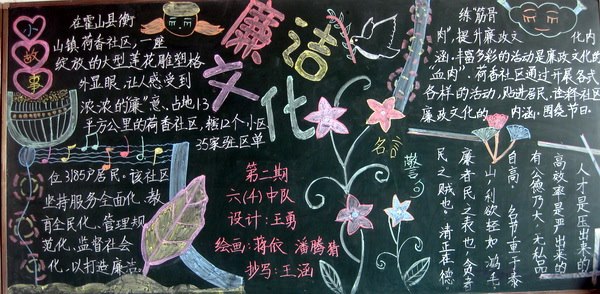 廉洁
文化
小
故
事
在霍山县衡
山镇荷香社区，一座
绽放的大型莲花雕塑格
外显眼，让人感受到
浓浓的廉"意，占地13
平方公里的荷香社区，辖12个小区
35家驻区单
位3185户居民。该社区
坚持服务全面化、教
育全民化、管理规
范化、监督社会
化，以打造廉洁
第二期
六(4)中队
设计：王勇
绘画：蒋依 潘腾猜
抄写：王涵
练"筋骨
肉"，提升廉政文 化内
涵，丰富多彩的活动是廉政文化的
血肉"，荷香社区通过开展各式
各样的活动，贴近居民，诠释社区
廉政文化的 内涵，围绕节日、
名言
警句
人才是压出来的
高效率是严出来的
有公德乃大，无私品
自高 名节重于泰
山，利欲轻如鸿毛
廉者民之表也，贪者
民之贼也。清正在德